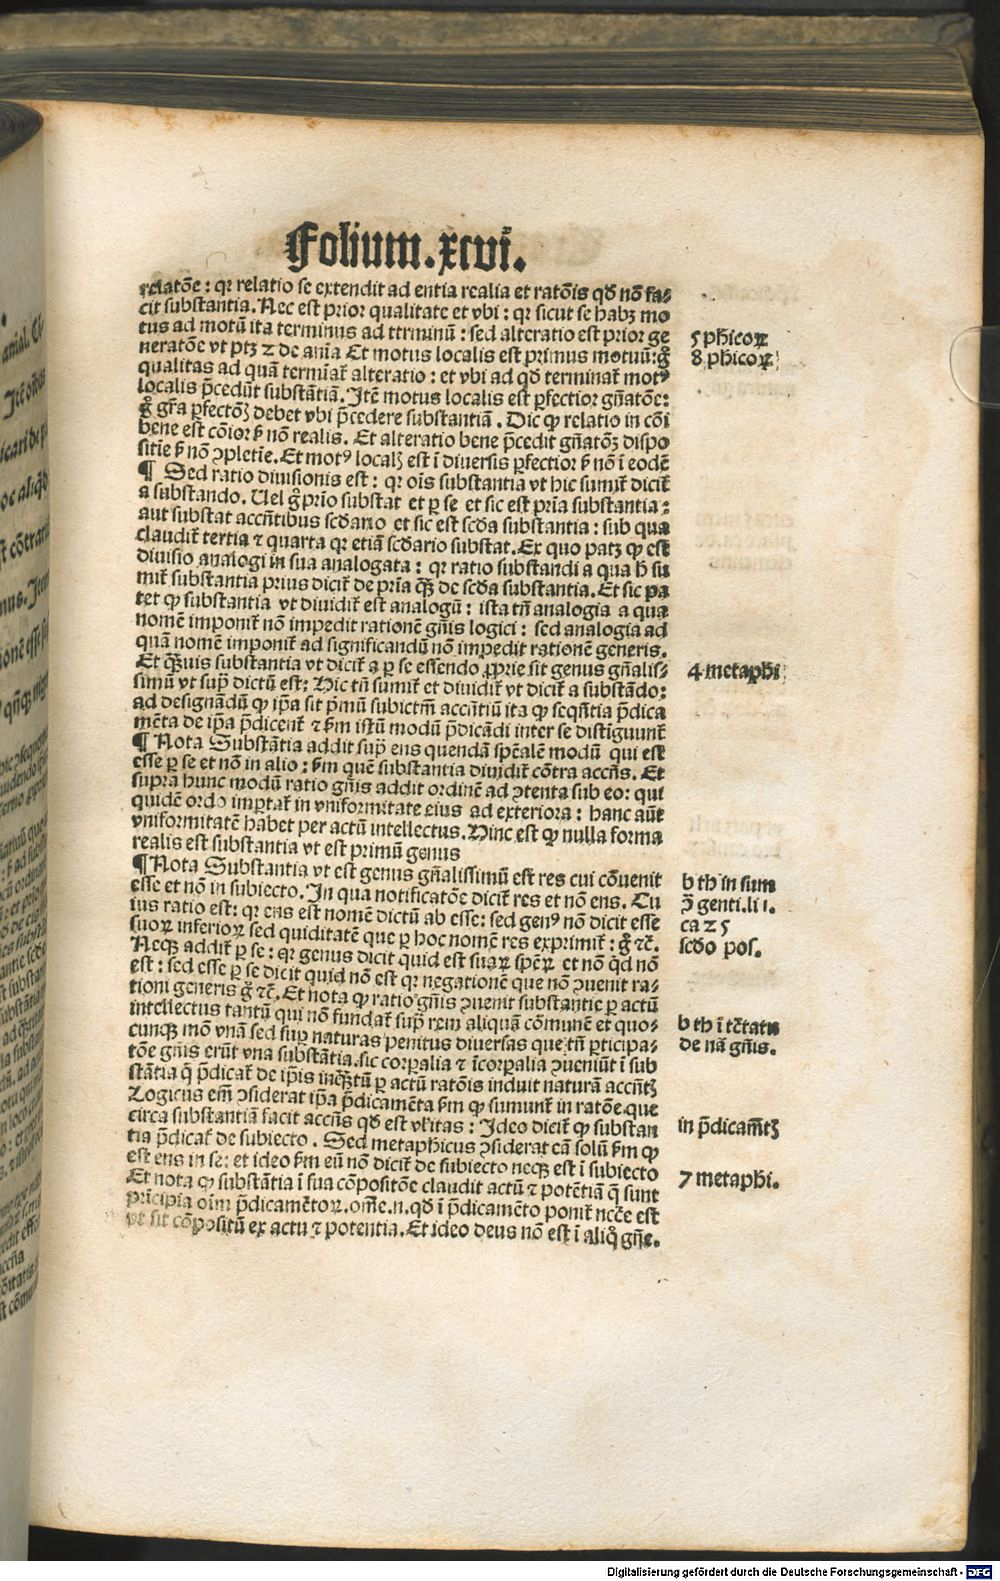 Folium.xcvi.
relatōe: qꝛ relatio se extendit ad entia realia et ratōis qd̄ nō fa-
cit substantia. Nec est prior qualitate et vbi: qꝛ sicut se habꝫ mo
tus ad motū ita terminus ad ttrminū: sed alteratio est prior ge
neratōe vt ptꝫ 2 de aīa Et motus localis est primus motuū: gͦ
qualitas ad quā termīat᷑ alteratio: et vbi ad qd̄ terminat᷑ motꝰ
localis p̄cedūt substātiā. Itē motus localis est ꝑfectior gn̄atōe:
gͦ gr̄a ꝑfectōꝫ debet vbi p̄cedere substantiā. Dic ꝙ relatio in cōi
bene est cōior ẜ nō realis. Et alteratio bene p̄cedit gn̄atōꝫ dispo
sitīe ẜ nō ꝯpletīe. Et motꝰ localꝭ est ī diuersis ꝑfectior ẜ nō ī eodē
¶ Sed ratio diuisionis est: qꝛ oīs substantia vt hic sumit᷑ dicit᷑
a substando. Uel gͦ prīo substat et ꝑ se et sic est prīa substantia:
aut substat accn̄tibus scd̄ario et sic est scd̄a substantia: sub qua
claudit᷑ tertia ⁊ quarta qꝛ etiā scd̄ario substat. Ex quo patꝫ ꝙ est
diuisio analogi in sua analogata: qꝛ ratio substandi a qua h̄ su
mit᷑ substantia prius dicit᷑ de prīa qꝫ̄ de scd̄a substantia. Et sic pa
tet ꝙ substantia vt diuidit᷑ est analogū: ista tn̄ analogia a qua
nomē imponit᷑ nō impedit rationē gn̄is logici: sed analogia ad
quā nomē imponit᷑ ad significandū nō impedit rationē generis.
Et qꝫ̄uis substantia vt dicit᷑ a ꝑ se essendo ꝓprie sit genus gn̄alis-
simū vt supͣ dictū est: Hic tn̄ sumit᷑ et diuidit᷑ vt dicit᷑ a substādo:
ad designādū ꝙ ip̄a sit pͥmū subictm̄ accn̄tiū ita ꝙ seqn̄tia p̄dica
mēta de ip̄a p̄dicent᷑ ⁊ ẜm istū modū p̄dicādi inter se distīguunt᷑
¶ Nota Substātia addit supͣ ens quendā spēalē modū qui est
esse ꝑ se et nō in alio: ẜm quē substantia diuidit᷑ cōtra accn̄s. Et
supra hunc modū ratio gn̄is addit ordinē ad ꝯtenta sub eo: qui
quidē ordo imꝑtat᷑ in vniformitate eius ad exteriora: hanc aūt
vniformitatē habet per actū intellectus. Hinc est ꝙ nulla forma
realis est substantia vt est primū genus
¶ Nota Substantia vt est genus gn̄alissimū est res cui cōuenit
esse et nō in subiecto. In qua notificatōe dicit᷑ res et nō ens. Cu
ius ratio est: qꝛ ens est nomē dictū ab esse: sed genꝰ nō dicit esse
suoꝝ inferioꝝ sed quiditatē que ꝑ hoc nomē res exprimit᷑: gͦ ⁊c̄.
Necꝫ addit᷑ ꝑ se: qꝛ genus dicit quid est suaꝝ spēꝝ et nō qd̄ nō
est: sed esse ꝑ se dicit quid nō est qꝛ negationē que nō ꝯuenit ra-
tioni generis gͦ ⁊c̄. Et nota ꝙ ratio gn̄is ꝯuenit substantie ꝑ actū
intellectus tantū qui nō fundat᷑ supͣ rem aliquā cōmunē et quo-
cunqꝫ mō vnā sed supͣ naturas penitus diuersas que tn̄ ꝑticipa-
tōe gn̄is erūt vna substātia. sic corꝑalia ⁊ īcorꝑalia ꝯueniūt ī sub
stātia q̄ p̄dicat᷑ de ip̄is inqꝫ̄tū ꝑ actū ratōis induit naturā accn̄tꝭ
Logicus em̄ ꝯsiderat ip̄a p̄dicamēta ẜm ꝙ sumunt᷑ in ratōe que
circa substantiā facit accn̄s qd̄ est vl̄itas: Ideo dicit᷑ ꝙ substan
tia p̄dicat᷑ de subiecto. Sed metaphicus ꝯsiderat eā solū ẜm ꝙ
est ens in se: et ideo ẜm eū nō dicit᷑ de subiecto necꝫ est ī subiecto
Et nota ꝙ substātia ī sua cōpositōe claudit actū ⁊ potētiā q̄ sunt
prīcipia oīm p̄dicamētoꝝ. om̄e.n.qd̄ ī p̄dicamēto ponit᷑ ncc̄e est
vt sit cōpositū ex actu ⁊ potentia. Et ideo deus nō est ī aliqͦ gn̄e.
5 phicoꝝ
8 phicoꝝ
4 metaphi
b th in sum
ꝯ genti.li 1.
ca 25
scd̄o pos.
b th ī tc̄tatu
de nā gn̄is.
in p̄dicam̄tꝭ
7 metaphi.
Digitalisierung gefördert durch die Deutsche Forschungsgemeinschaft - DFG